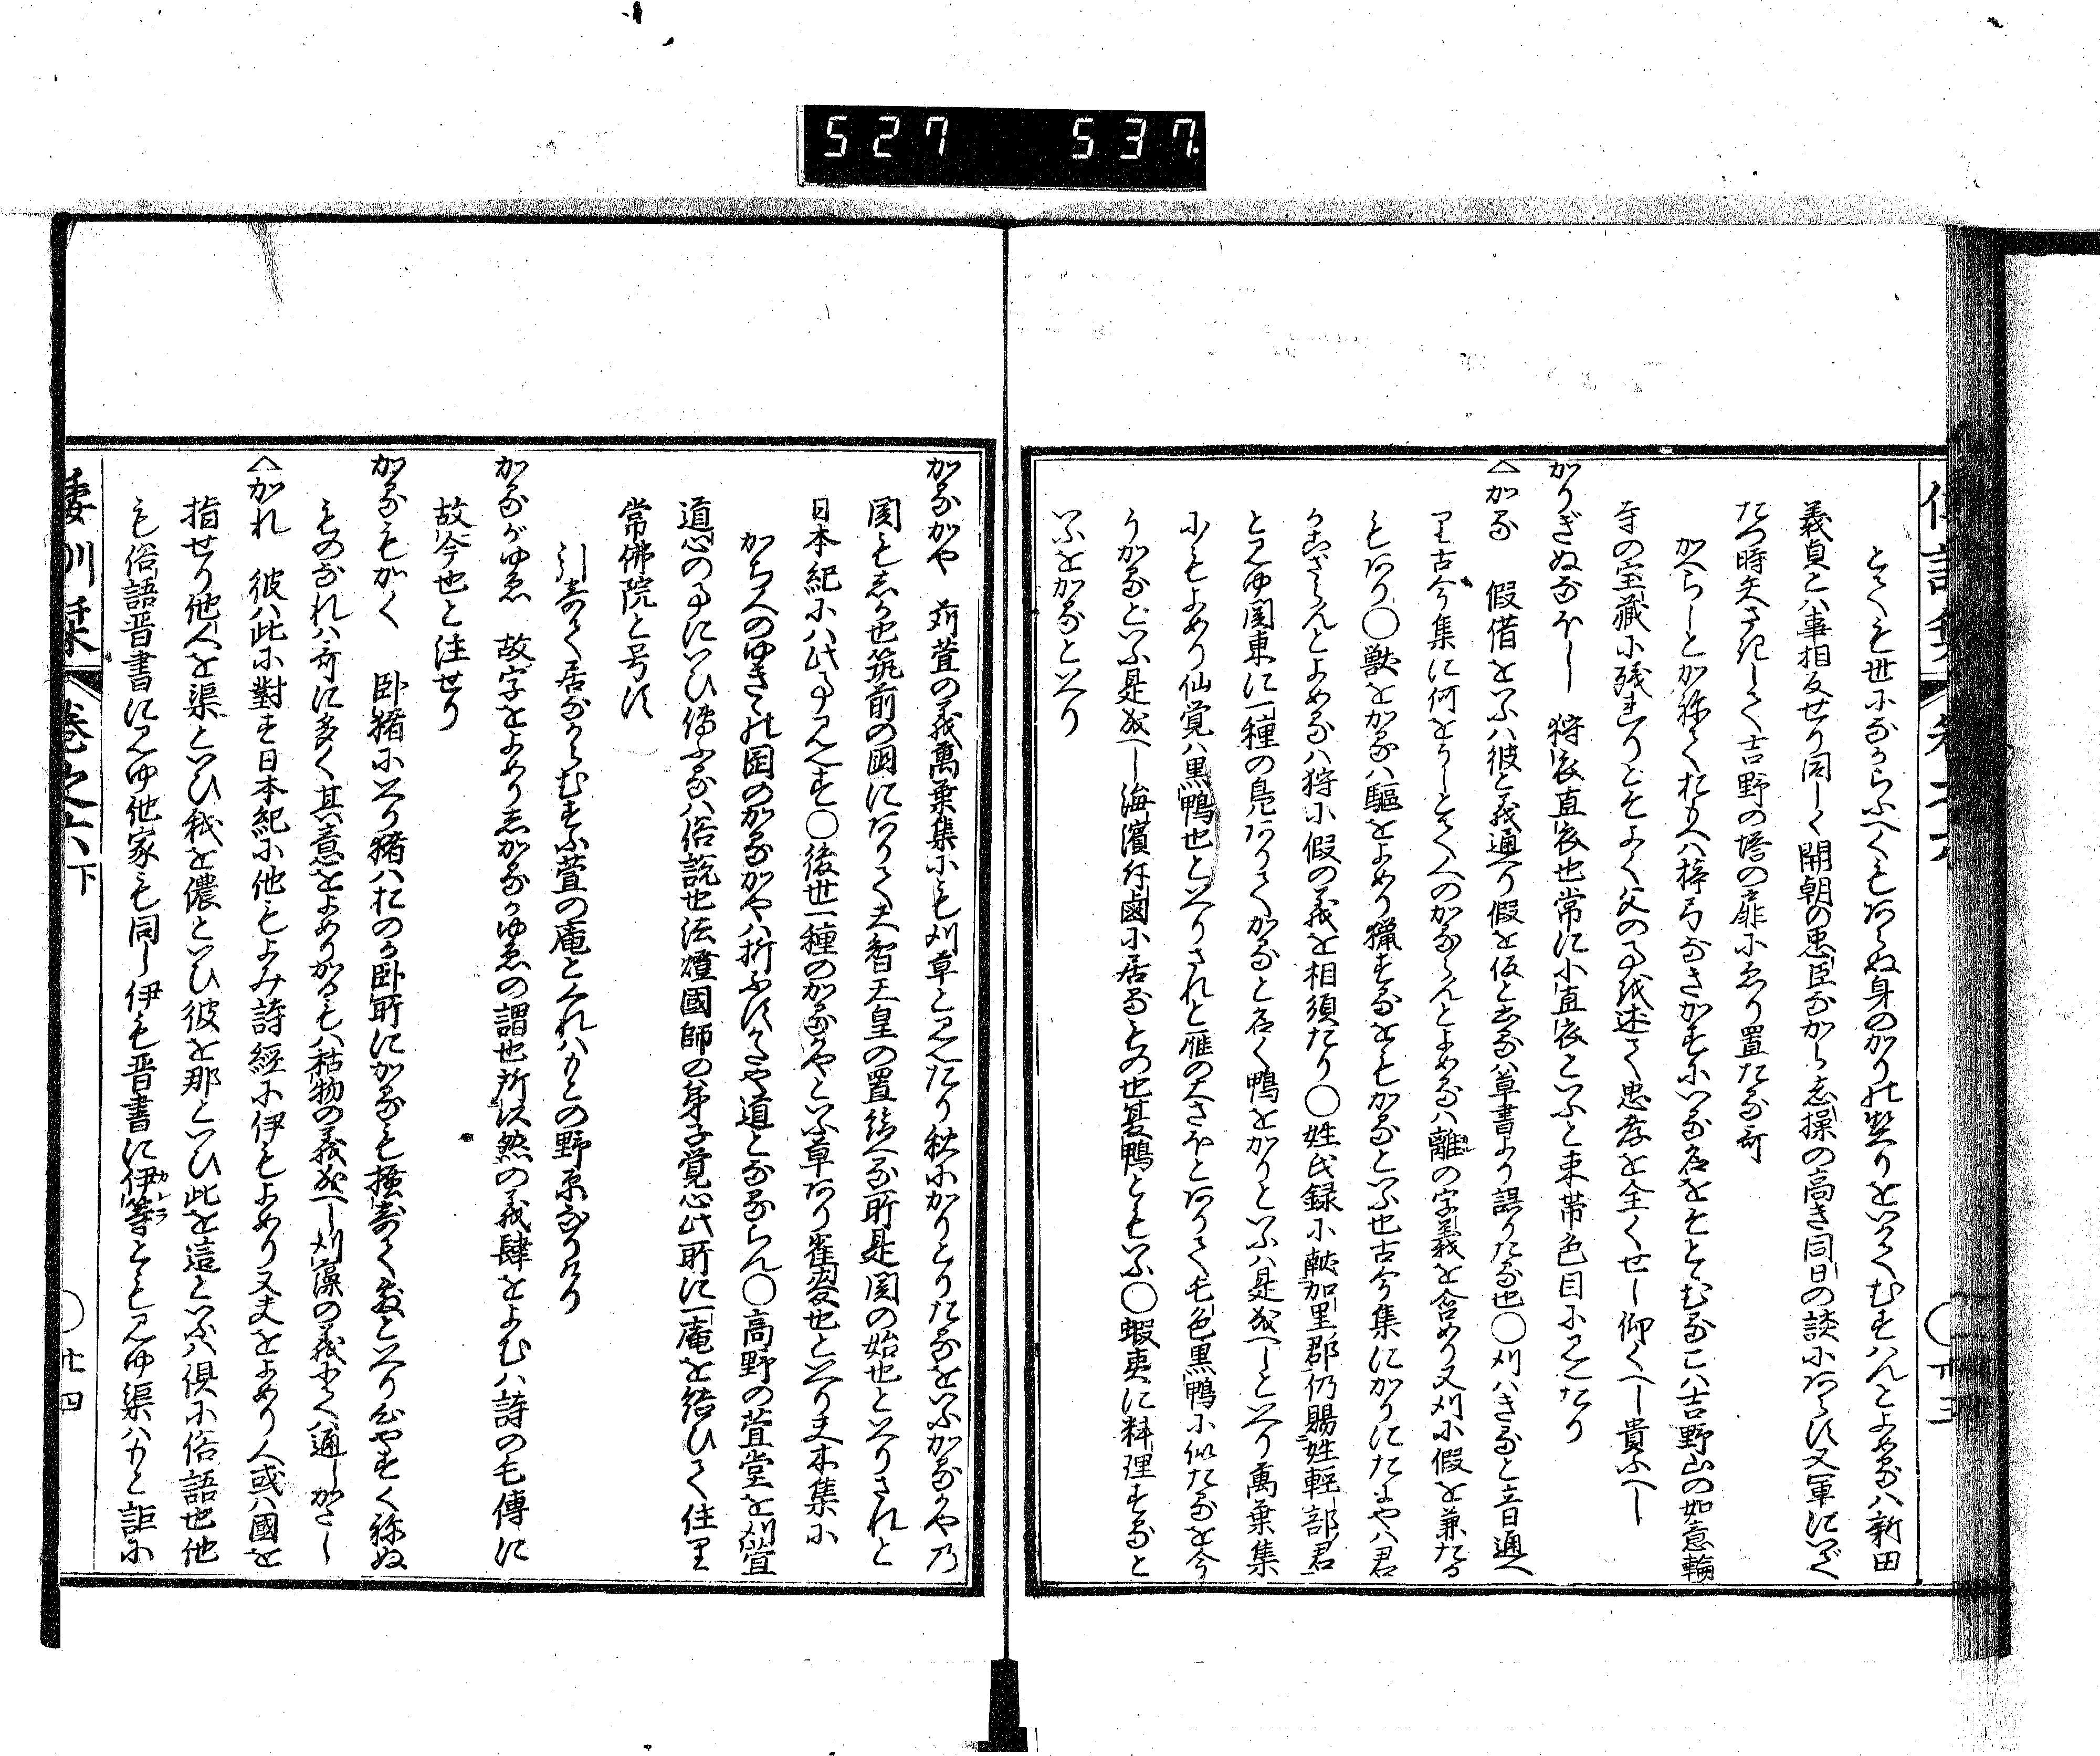 527 537
とても世になからふへくもあらぬ身のかりの契りをいかてむすはんとよめるハ新田
義貞とハ事相反せり同しく開朝の忠臣なから志操の高き同日の談にあらす又軍にいて
たつ時矢さきして吉野の塔の扉にゑり置たる哥
かへらしとかねておもへハ梓弓なきかすにいる名をそとゝむるとハ吉野山の如意輪
寺の宝藏に残れりとそよく父の事を述て忠孝を全くせし仰くへし貴ふへし
かりぎぬなほし　狩衣直衣也常に小直衣といふと束帯色目に見えたり
△かる　假借をいふハ彼と義通へり假を仮と書るハ草書より誤りたる也〇刈ハきると音通へ
り古今集に何をうしとて人のかるらんとよめるハ離の字義を含めり又刈に假を兼たる
もあり〇獸をかるハ驅をよめり獵するをもかるといふ也古今集にかりにたにやハ君
かこさらんとよめるハ狩に假の義を相須たり〇姓氏録に献加里郡仍賜姓輕部君
と見ゆ関東に一種の鳧ありてかると名く鴨をかりといふハ是成へしといへり萬葉集
にもよめり仙覚ハ黒鴨也といへりされと雁の大さほとありて毛色黒鴨に似たるを今
うかるといふ是成へし海濱斥鹵に居るもの也夏鴨ともいふ〇蝦夷に料理するを
いふとかるといへり
かるかや　苅萱の義萬葉集にも刈草と見えたり秋にかりとりたるをいふかるかや乃
関もしか也筑前の国にありて天智天皇の置給へる所是関の始也といへりされと
日本紀にハ此事見えす〇後世一種のかるかやといふ草あり雀麥也といへり夫木集に
かち人のゆきゝの岡のかるかやハ折ふすかたや道となるらん〇高野の萱堂を刈萱
道心の事にいひ傳ふるハ俗説也法燈國師の弟子覚心此所に一庵を結ひて住り
常佛院と号す
引よせて居なからむすふ萱の庵とくれハもとの野原なりけり
かるがゆゑ　故字をよめりしかるかゆゑの謂也所以然の義肆をよむハ詩の毛傳に
故今也と注せり
かるもかく　臥猪にいへり猪ハおのか臥所にかるも掻寄て敷といへり心やすく称ぬ
ものなれハ哥に多く其意をよめりかるもハ枯物の義成へし刈藻の義にてハ通しかたし
△かれ　彼ハ此に對す日本紀に他もよみ詩經に伊もよめり又夫をよめり人或ハ國を
指せり他人を渠といひ我を儂といひ彼を那といひ此を這といふハ倶に俗語也他
も俗語晋書に見ゆ他家も同し伊も晋書に伊等とも見ゆ渠ハカと詎に
倭訓栞　巻之六下　廿四